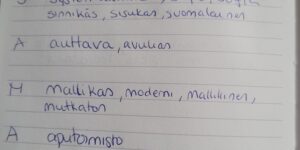 sinnikäs, sisukas, suomalainen
A auttava, avulias
M mallikas, moderni, mallikinen,
mutkaton
A aputoimisto